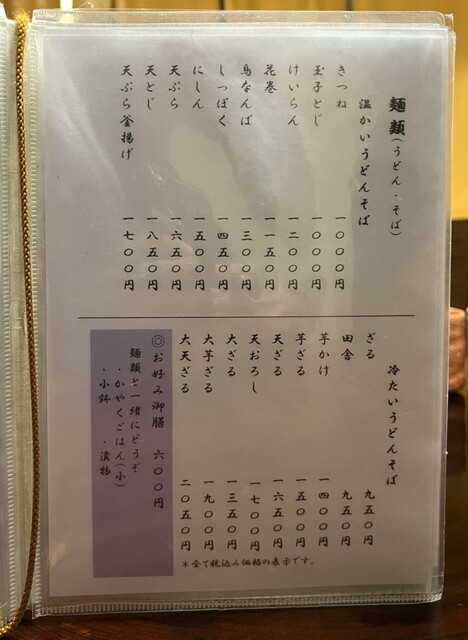 麺類(うどん・そば)
温かいうどんそば
きつね 一〇〇〇円
玉子とじ 一〇〇〇円
けいらん 一二〇〇円
花巻 一一五〇円
鳥なんば 一三〇〇円
しっぽく 一四五〇円
にしん 一五〇〇円
天ぷら 一六五〇円
天とじ 一八五〇円
天ぷら釜揚げ 一七〇〇円
冷たいうどんそば
ざる 九五〇円
田舎 九五〇円
芋かけ 一四〇〇円
芋ざる 一五〇〇円
天ざる 一六五〇円
天おろし 一七〇〇円
大ざる 一三五〇円
大芋ざる 一九〇〇円
大天ざる 二〇五〇円
＊全て税込み価格の表示です。
◎お好み御膳 六〇〇円
麺類と一緒にどうぞ
・かやくごはん(小)
・小鉢 ・漬物